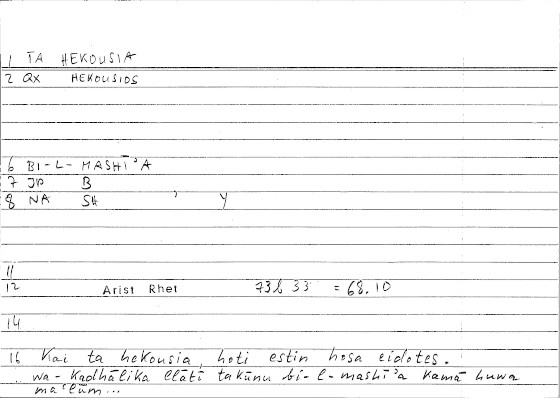 1 TA HEKOUSIA
2 QX HEKOUSIOS
6 BI-L-MASHĪ'A
7 JP B
8 NA SH ' Y
11
12 Arist Rhet 73b 33 = 68.10
14
16 Kai ta hekousia, hoti estin hosa eidotes.
wa-kadhālika llātī takūnu bi-l-mashī'a kamā huwa
ma'lūm...